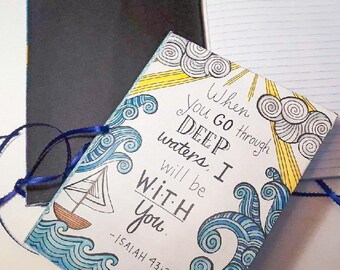 When
you GO through
DEEP
waters, I
will be
WITH
You.
~ISAIAH 43:2